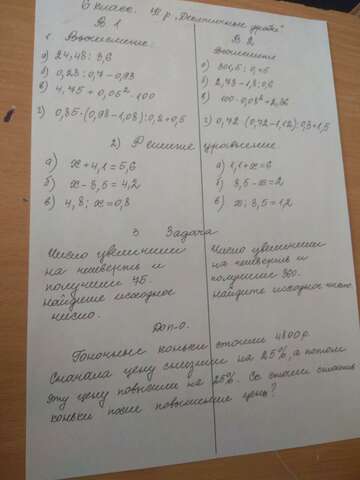 6 класс. к/р "Десятичные дроби"
В. 1
1. Вычислите:
а) 24,48 : 3,6
б) 0,23 : 0,7 - 0,93
в) 4,75 + 0,05² · 100
г) 0,35 · (0,98 - 1,08) : 0,2 + 0,5
В 2
Вычислите
б) 2,73 - 1,8 : 0,6
в) 100 · 0,03² + 2,36
г) 0,72 · (0,72 - 1,12) : 0,3 + 1,5
2) Решите уравнение
а) x + 4,1 = 5,6
б) x - 3,5 = 4,2
в) 4,8 : x = 0,8
а) 1,1 + x = 6
б) 3,5 - x = 2
в) x : 3,5 = 1,2
3 Задача
Число увеличили
на четверть и
получили 75.
найдите исходное
число.
Число увеличили
на четверть и
получили 360.
найдите исходное число.
Доп-о.
Гоночные коньки стоили 4800 р.
Сначала цену снизили на 25%, а потом
эту цену повысили на 25%. Ск. стоили
коньки после повышения цены?